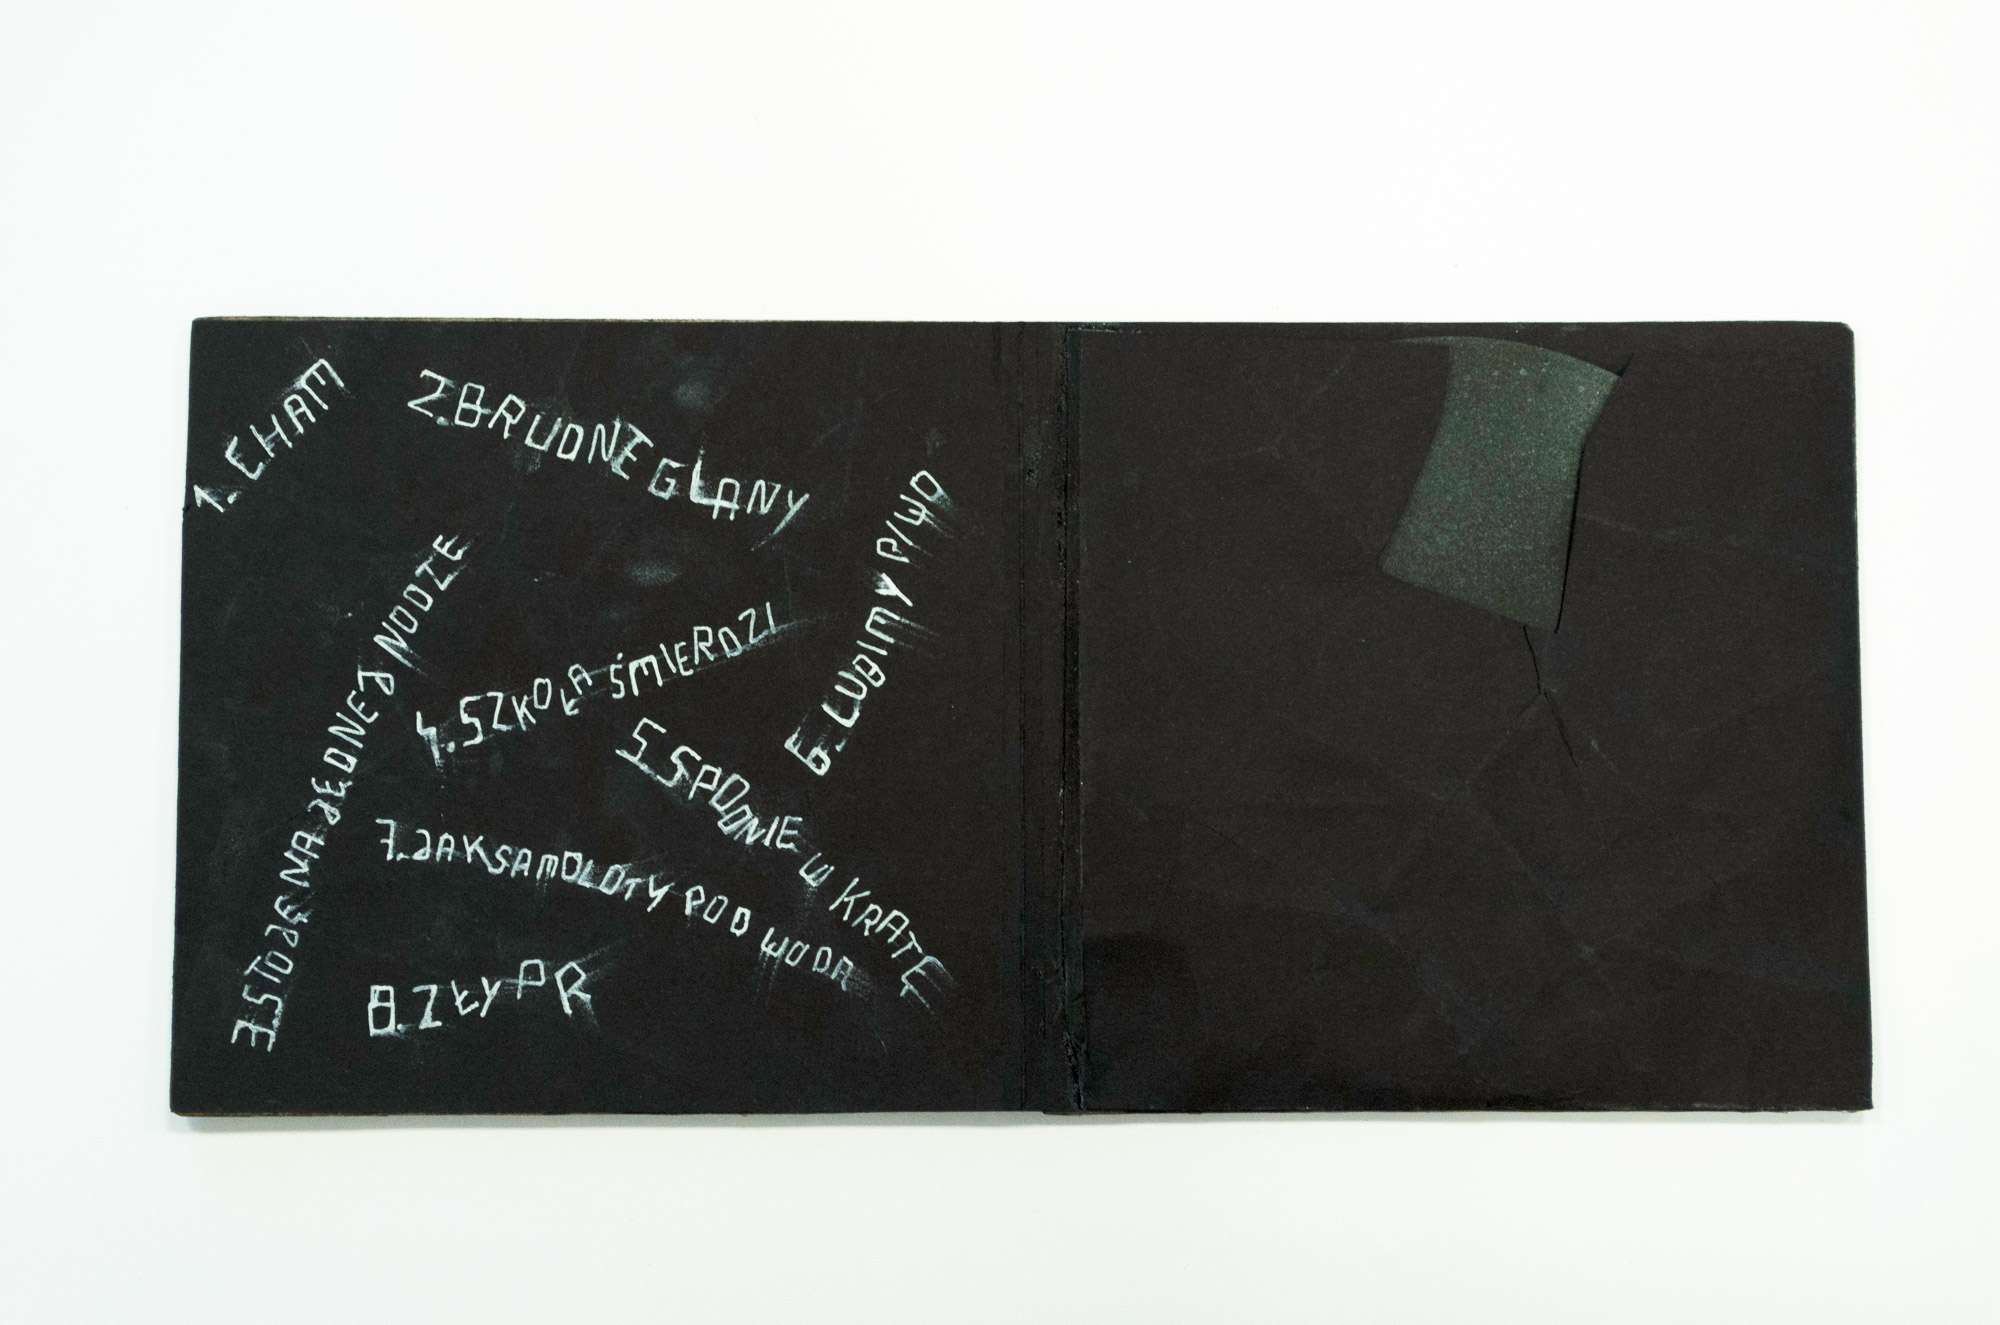 1. CHAM
2. BRUDNE GLANY
3. STOJĘ NA JEDNEJ NODZE
4. SZKOŁA ŚMIERDZI
5. SPODNIE W KRATĘ
6. LUBIMY PIWO
7. JAK SAMOLOTY POD WODĄ
8. ZŁY PR